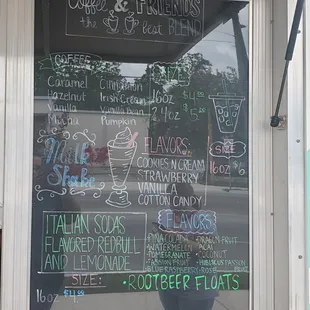 Coffee & Friends
the best BLEND
COFFEE
Caramel Cinnamon
Hazelnut Irish Cream
Vanilla Vanilla Bean
Mocha Pumpkin
SIZE
16oz $4
24oz $5
Milk
Shake
FLAVORS
COOKIES N CREAM
STRAWBERRY
VANILLA
COTTON CANDY
SIZE
16oz $6
ITALIAN SODAS
FLAVORED REDBULL
AND LEMONADE
FLAVORS
PINA COLADA DRAGON FRUIT
WATERMELON ACAI
POMEGRANATE COCONUT
PASSION FRUIT HIBISCUS PASSION
BLUE RASPBERRY ROSE
SIZE:
16oz
ROOTBEER FLOATS